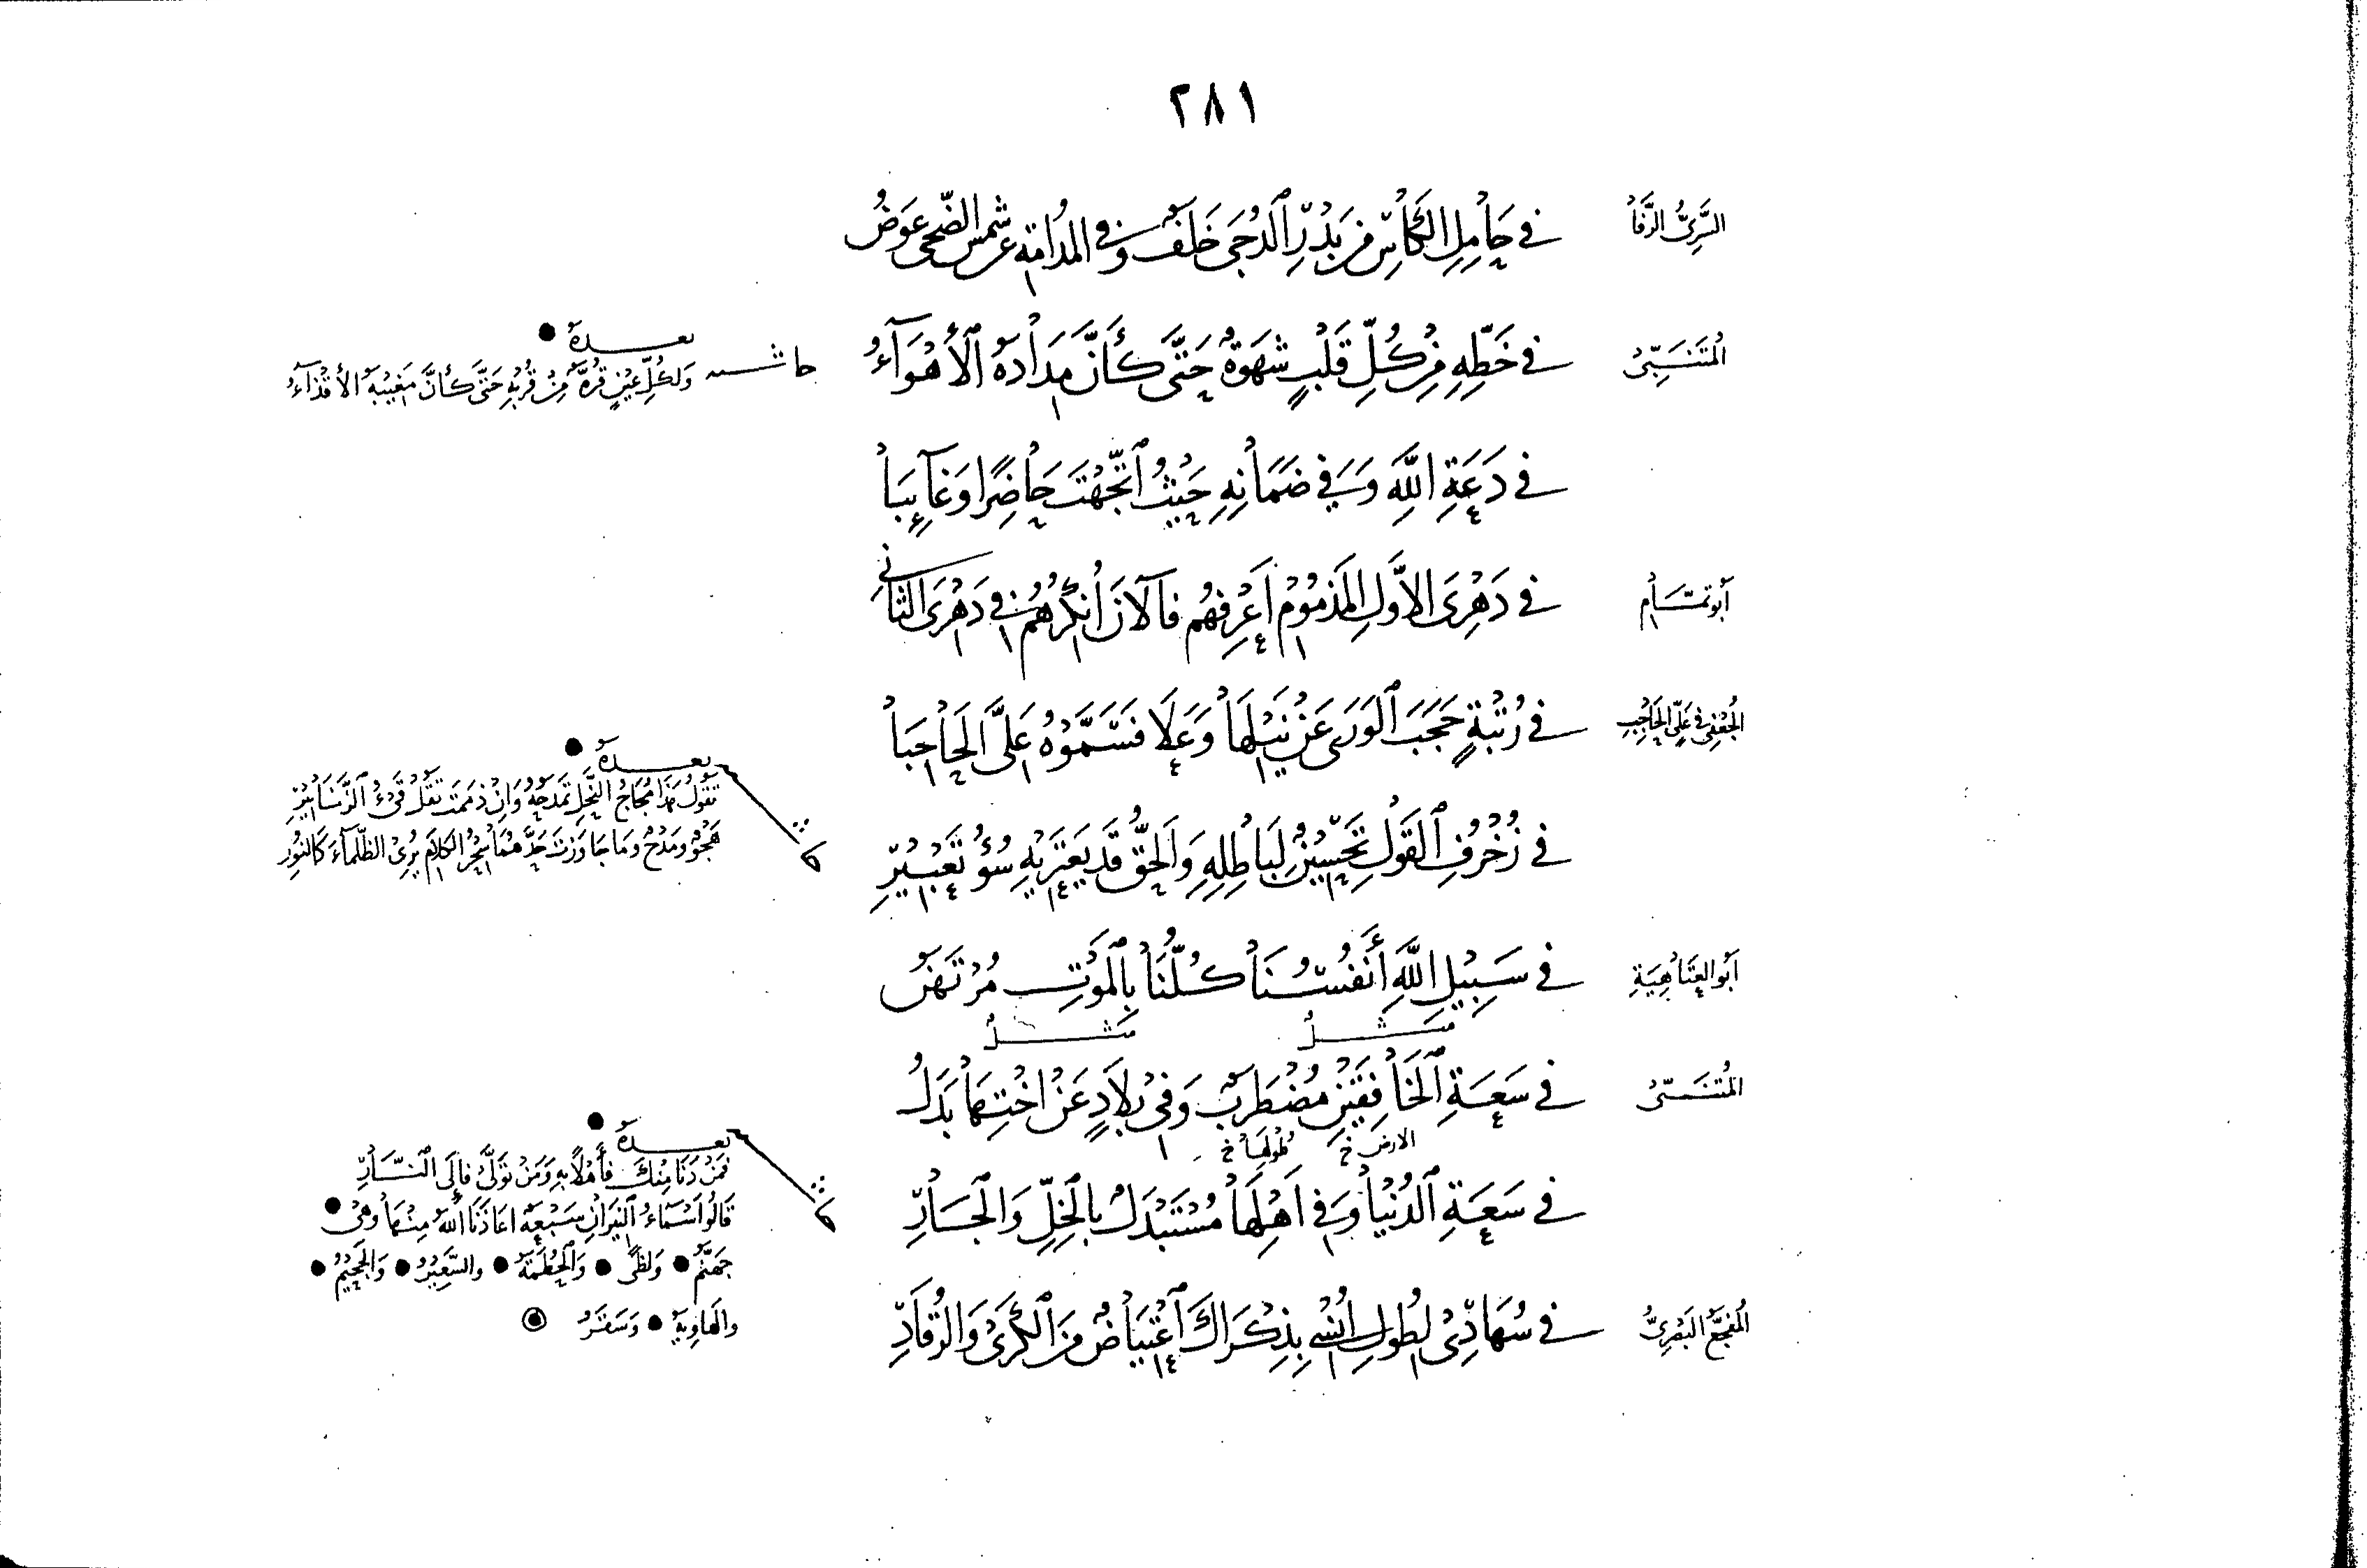 ٢٨١
السَّرِيُّ الرَّفَاءُ
في حَامِلِ الكَأسِ مِن بَدْرِ الدُجَى خَلَفٌ وَفي المُدَامَةِ عَن شَمسِ الضُّحَى عِوَضُ
المُتَنَبِّي
في خَطِّهِ مِنْ كُلِّ قَلْبٍ شَهْوَةٌ حَتَّى كَأَنَّ مِدَادَهُ الأَهْوَآءُ
حاشية
بعده
وَلِكُلِّ عَيْنٍ قُرَّةٌ مِنْ قُرْبِهِ حَتَّى كَأَنَّ مَغِيبَهُ الأَقْذَآءُ
في دَعَةِ اللَّهِ وَفي ضَمَانِهِ حَيْثُ اتَّجَهْتَ حَاضِرًا وَغَآئِبَا
أبو تمّام
في دَهْرِيَ الأَوَّلِ المَذْمُومِ أَعْرِفُهُم فَالآنَ أُنْكِرُهُم في دَهْرِيَ الثَّانِي
الجُعْفِي في عَلِيِّ الحَاجِبِ
في رُتْبَةٍ حَجَبَ الوَرَى عَنْ نَيْلِهَا وَعَلَا فَسَمَّوْهُ عَلِيَّ الحَاجِبَا
في زُخْرُفِ القَوْلِ تَحْسِينٌ لِبَاطِلِهِ وَالحَقُّ قَد يَعْتَرِيهِ سُوءُ تَعْبِيرِ
بعده
تَقُولُ هَذَا مُجَاجُ النَّحْلِ تَمْدَحُهُ وَإِنْ ذَمَمْتَ تَقُلْ قَيْءُ الزَّنَابِيرِ
هَجْوٌ وَمَدْحٌ وَمَا جَاوَزْتَ حَدَّهُمَا سِحْرُ الكَلَامِ يُرِي الظَّلْمَآءَ كَالنُّورِ
أبو العَتَاهِيَةِ
في سَبِيلِ اللَّهِ أَنْفُسُنَا كُلُّنَا بِالمَوْتِ مُرْتَهَنُ
مثل مثل
المُتَنَبِّي
في سَعَةِ الخَافِقَيْنِ مُضْطَرَبٌ وَفي بِلَادٍ عَنْ اخْتِهَا بَدَلُ
الارض خ طولها خ
في سَعَةِ الدُّنْيَا وَفي أَهْلِهَا مُسْتَبْدَلٌ بِالخِلِّ وَالجَارِ
بعده
فَمَنْ دَنَا مِنْكَ فَأَهْلًا بِهِ وَمَنْ تَوَلَّى فَإِلَى النَّارِ
قَالُوا أَسْمَاءُ النِّيرَانِ سَبْعَةٌ اعَاذَنَا اللَّهُ مِنْهَا وَهْيَ
جَهَنَّمُ وَلَظَى وَالحُطَمَةُ وَالسَّعِيرُ وَالجَحِيمُ
وَالهَاوِيَةُ وَسَقَرُ
المُفَجَّعُ البَصْرِيُّ
في سُهَادِي لِطُولِ أُنْسِي بِذِكْرَاكَ اعْتِيَاضٌ مِنَ الكَرَى وَالرُّقَادِ